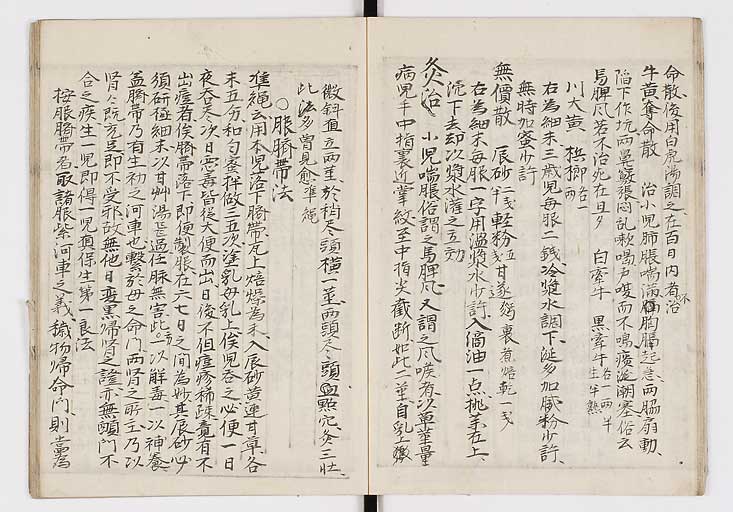 命散後用白虎湯調之在百日內者不治
牛黃奪命散　治小児肺脹喘滿胸膈起急兩脇扇動
陷下作坑兩鼻竅張悶乱嗽喝声嗄而不鳴痰涎潮塞俗云
馬脾风若不治死在旦夕　白牽牛　黒牽牛各一两半生半熟
川大黃　梹榔各一两
右為細末三歲児每服二錢冷漿水調下涎多加膩粉少許
無時加蜜少許
無價散　辰砂二戔半　軽粉五戔　甘遂麪裏煮焙乾一戔
右為細末每服一字用溫漿水少許入滴油一点挑藥在上
沉下去却以漿水灌之立効
灸治　小児喘脹俗謂之馬脾风又謂之风喉者以草莖量
病児手中指裏近掌紋至中指尖截断如此二莖自乳上
微斜直立兩莖於稍尽頭橫一莖兩頭尽頭點穴灸三壮
此法多曾見愈準繩
○服臍帶法
準繩云用本児落下臍帶瓦上焙燥為末入辰砂黃連甘草各
末五分和匀蜜拌做三五次塗乳母乳上俟児吞之必使一日
夜吞尽次日悪毒皆從大便而出日後不但痘疹稀疎竟有不
出痘者俟臍帶落下即便製服在六七日之間為妙其辰砂必
須研極細末以甘艸湯飛過任服無害此方以解毒一以神養
盖臍帶乃有生初之河車也繫於母之命門兩腎之所主乃以
腎之既充足即不受邪故無他日変黒帰腎之證亦無顖門不
合之疾生一児即得一児真保生第一良法
按服臍帶者取諸服紫河車之義穢物帰命門則